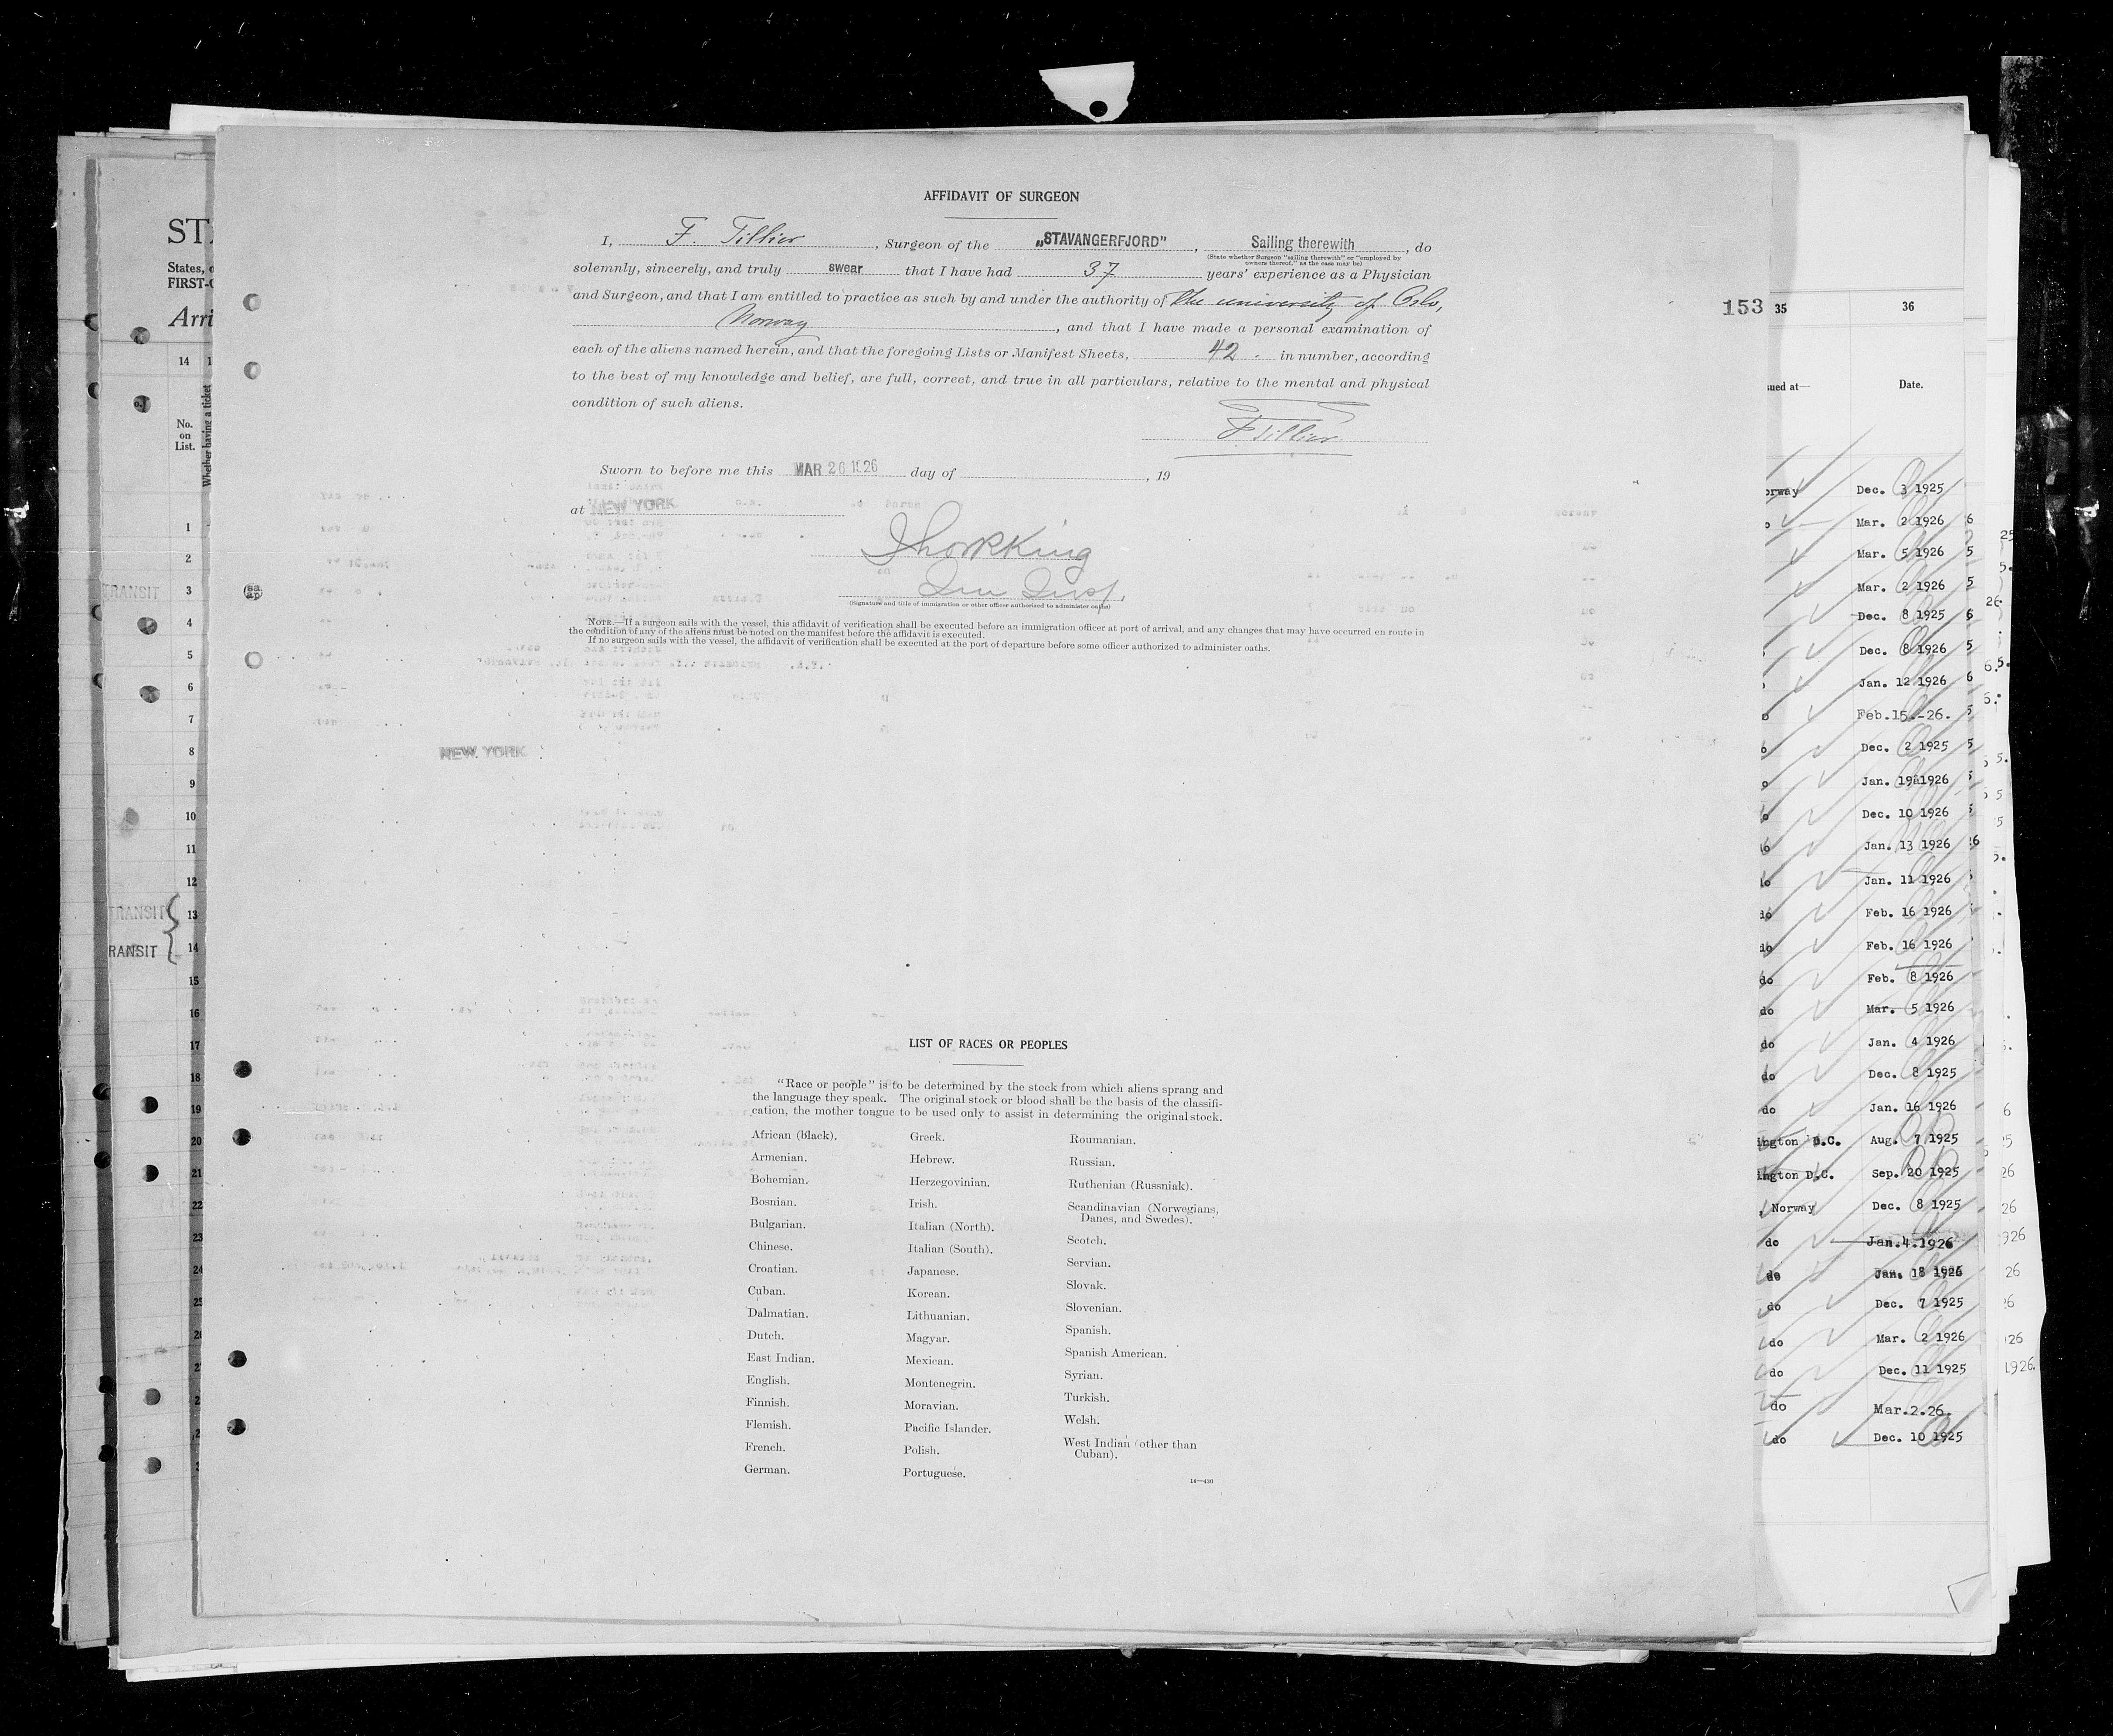 AFFIDAVIT OF SURGEON
I, F. Tillier, Surgeon of the „STAVANGERFJORD", Sailing therewith, do
(State whether Surgeon "sailing therewith" or "employed by
owners thereof," as the case may be)
solemnly, sincerely, and truly swear that I have had 37 years' experience as a Physician
and Surgeon, and that I am entitled to practice as such by and under the authority of The university of Oslo,
Norway, and that I have made a personal examination of
each of the aliens named herein, and that the foregoing Lists or Manifest Sheets, 42 in number, according
to the best of my knowledge and belief, are full, correct, and true in all particulars, relative to the mental and physical
condition of such aliens.
F. Tillier
Sworn to before me this MAR 26 1926 day of , 19
at NEW YORK
(Signature and title of immigration or other officer authorized to administer oaths)
NOTE.—If a surgeon sails with the vessel, this affidavit of verification shall be executed before an immigration officer at port of arrival, and any changes that may have occurred en route in
the condition of any of the aliens must be noted on the manifest before the affidavit is executed.
If no surgeon sails with the vessel, the affidavit of verification shall be executed at the port of departure before some officer authorized to administer oaths.
NEW YORK
LIST OF RACES OR PEOPLES
"Race or people" is to be determined by the stock from which aliens sprang and
the language they speak. The original stock or blood shall be the basis of the classifi-
cation, the mother tongue to be used only to assist in determining the original stock.
African (black).
Armenian.
Bohemian.
Bosnian.
Bulgarian.
Chinese.
Croatian.
Cuban.
Dalmatian.
Dutch.
East Indian.
English.
Finnish.
Flemish.
French.
German.
Greek.
Hebrew.
Herzegovinian.
Irish.
Italian (North).
Italian (South).
Japanese.
Korean.
Lithuanian.
Magyar.
Mexican.
Montenegrin.
Moravian.
Pacific Islander.
Polish.
Portuguese.
Roumanian.
Russian.
Ruthenian (Russniak).
Scandinavian (Norwegians,
Danes, and Swedes).
Scotch.
Servian.
Slovak.
Slovenian.
Spanish.
Spanish American.
Syrian.
Turkish.
Welsh.
West Indian (other than
Cuban).
14—430
153
35
36
sued at—
Date.
orway Dec. 3 1925
Mar. 2 1926
Mar. 5 1926
Mar. 2 1926
Dec. 8 1925
Dec. 8 1926
Jan. 12 1926
Feb.15.-26.
Dec. 2 1925
Jan. 19 1926
Dec. 10 1926
Jan. 13 1926
Jan. 11 1926
do Feb. 16 1926
do Feb. 16 1926
do Feb. 8 1926
do Mar. 5 1926
do Jan. 4 1926
do Dec. 8 1925
do Jan. 16 1926
ington D.C. Aug. 7 1925
ington D.C. Sep. 20 1925
, Norway Dec. 8 1925
do Jan.4.1926
do Jan. 18 1926
do Dec. 7 1925
do Mar. 2 1926
do Dec. 11 1925
do Mar.2.26.
do Dec. 10 1925
States,
FIRST-
Arri
14
No.
on
List.
Whether having a ticket
1
2
TRANSIT 3
4
5
6
7
8
9
10
11
12
TRANSIT 13
RANSIT 14
15
16
17
18
19
20
21
22
23
24
25